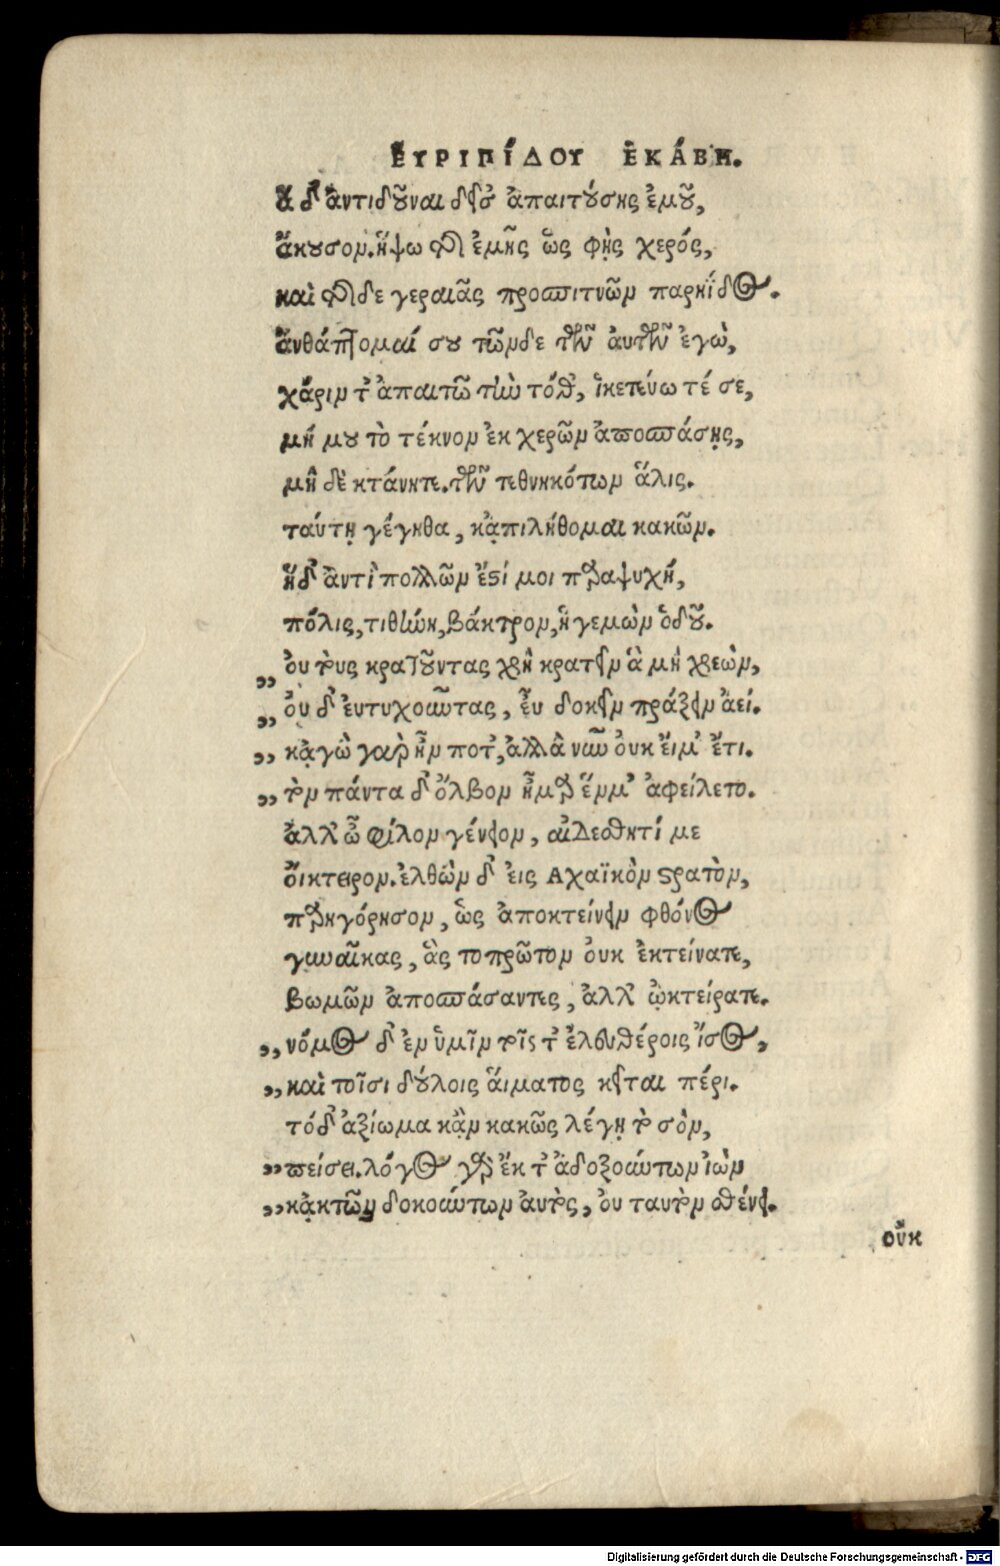 ἘΥΡΙΠΊΔΟΥ ἙΚΆΒΗ.
ἃ δ' ἀντιδοῦναι δεῖ σ' ἀπαιτούσης ἐμοῦ,
ἄκουσον. ἥψω τῆς ἐμῆς ὡς φῂς χερός,
καὶ τῆσδε γεραιᾶς προσπιτνῶν παρηΐδος.
ἀνθάπτομαί σου τῶνδε τῶν ἀυτῶν ἐγὼ,
χάριν τ' ἀπαιτῶ τὴν τόθ', ἱκετεύω τέ σε,
μή μου τὸ τέκνον ἐκ χερῶν ἀποσπάσῃς,
μὴ δὲ κτάνητε. τῶν τεθνηκότων ἅλις.
ταύτῃ γέγηθα, κᾀπιλήθομαι κακῶν.
ἥδ' ἀντὶ πολλῶν ἐστί μοι παραψυχή,
πόλις, τιθήνη, βάκτρον, ἡγεμὼν ὁδοῦ.
,, ὀυ τοὺς κρατοῦντας χρὴ κρατεῖν ἃ μὴ χρεὼν,
,, ὀυ δ' ἐυτυχοῦντας, ἐῦ δοκεῖν πράξειν ἀεί.
,, κᾀγὼ γὰρ ἦν ποτ', ἀλλὰ νῦν ὀυκ εἴμ' ἔτι.
,, τὸν πάντα δ' ὄλβον ἦμαρ ἕν μ' ἀφείλετο.
ἀλλ' ὦ φίλον γένειον, αἰδέσθητί με
οἴκτειρον. ἐλθὼν δ' εἰς Αχαϊκὸν στρατὸν,
παρηγόρησον, ὡς ἀποκτείνειν φθόνος
γυναῖκας, ἃς τοπρῶτον ὀυκ ἐκτείνατε,
βωμῶν ἀποσπάσαντες, ἀλλ' ᾠκτείρατε.
,, νόμος δ' ἐν ὑμῖν τοῖς τ' ἐλευθέροις ἴσος,
,, καὶ τοῖσι δούλοις ἅιματος κεῖται πέρι.
τὸ δ' ἀξίωμα κᾂν κακῶς λέγῃ τὸ σὸν,
,, πείσει. λόγος γὰρ ἔκ τ' ἀδοξούντων ἰὼν
,, κᾀκ τῶν δοκούντων ἀυτὸς, ὀυ ταυτὸν σθένει.
οὔκ
Digitalisierung gefördert durch die Deutsche Forschungsgemeinschaft - DFG